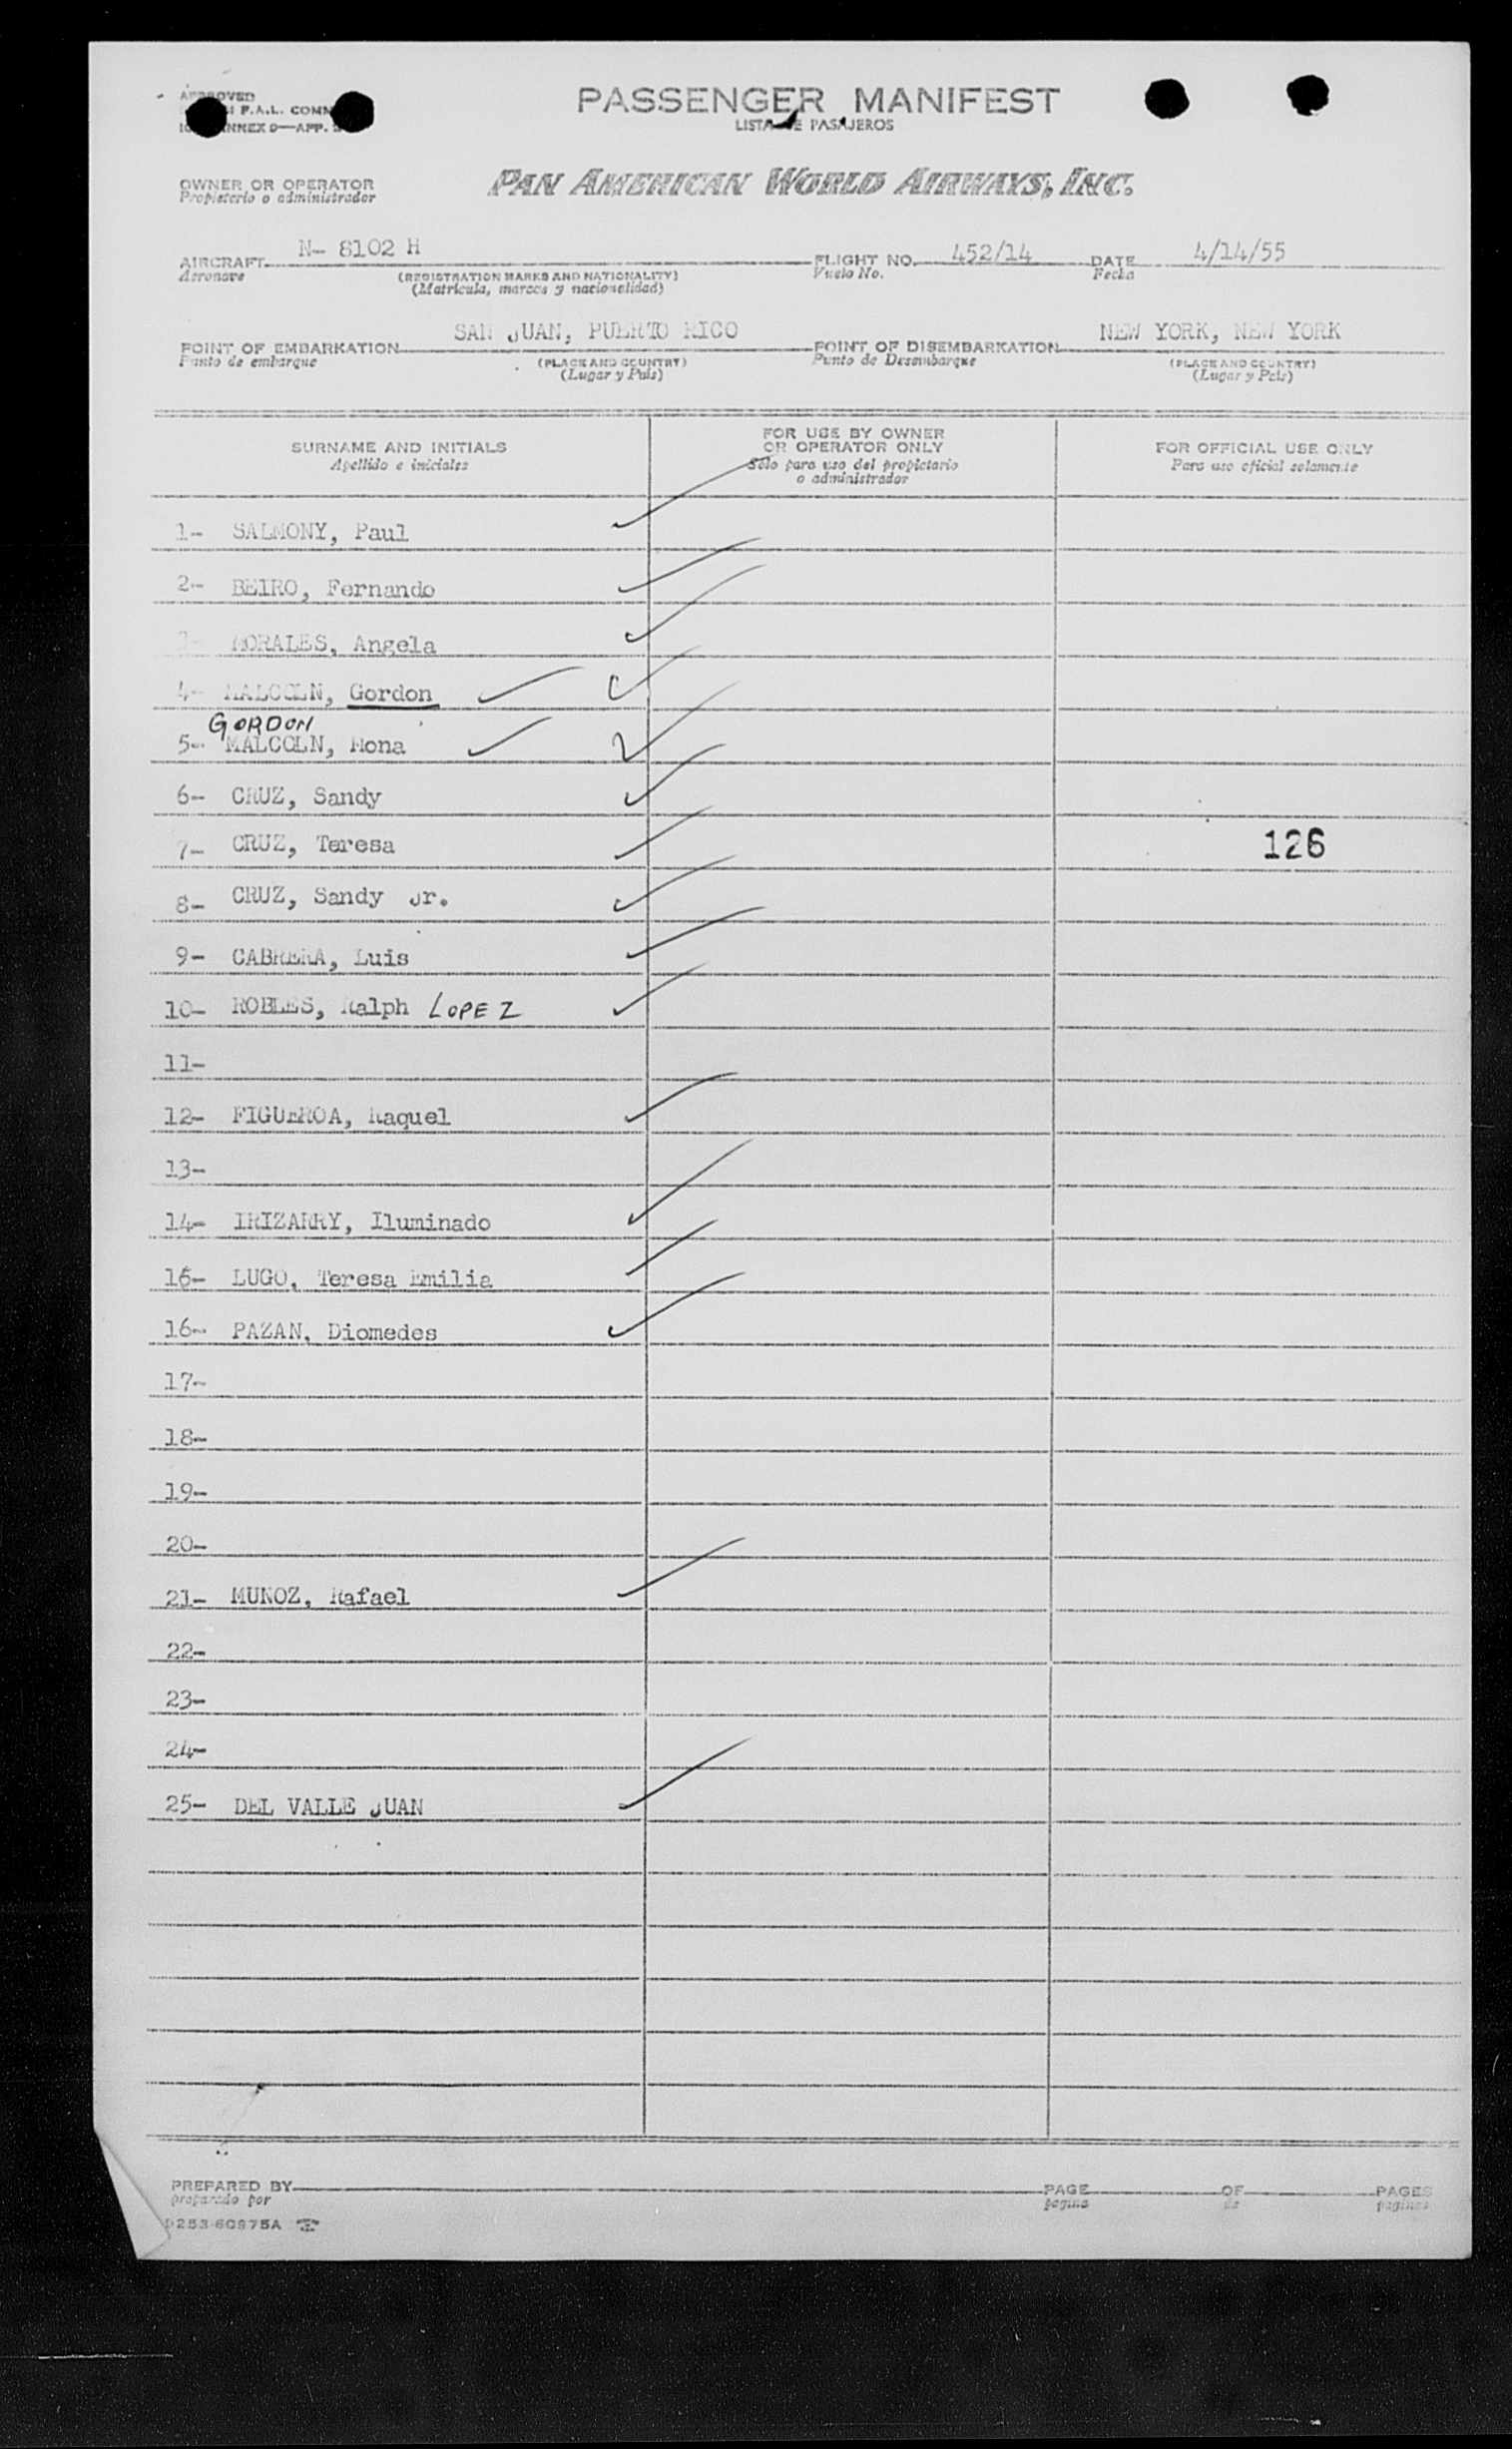 APPROVED
F.A.L. COMM
ANNEX 9—APP.
PASSENGER MANIFEST
LISTA DE PASAJEROS
OWNER OR OPERATOR
Propietario o administrador
PAN AMERICAN WORLD AIRWAYS, INC.
AIRCRAFT N- 8102 H FLIGHT NO. 452/14 DATE 4/14/55
Aeronave (REGISTRATION MARKS AND NATIONALITY) Vuelo No. Fecha
(Matricula, marcas y nacionalidad)
POINT OF EMBARKATION SAN JUAN, PUERTO RICO POINT OF DISEMBARKATION NEW YORK, NEW YORK
Punto de embarque (PLACE AND COUNTRY) Punto de Desembarque (PLACE AND COUNTRY)
(Lugar y Pais) (Lugar y Pais)
SURNAME AND INITIALS FOR USE BY OWNER OR OPERATOR ONLY FOR OFFICIAL USE ONLY
Apellido e iniciales Sólo para uso del propietario o administrador Para uso oficial solamente
1- SALMONY, Paul
2- BEIRO, Fernando
3- MORALES, Angela
4- MALCOLN, Gordon
GORDON
5- MALCOLN, Mona
6- CRUZ, Sandy
7- CRUZ, Teresa 126
8- CRUZ, Sandy Jr.
9- CABRERA, Luis
10- ROBLES, Ralph LOPEZ
11-
12- FIGUEROA, Raquel
13-
14- IRIZARRY, Iluminado
15- LUGO, Teresa Emilia
16- PAZAN, Diomedes
17-
18-
19-
20-
21- MUNOZ, Rafael
22-
23-
24-
25- DEL VALLE JUAN
PREPARED BY PAGE OF PAGES
preparado por pagina de paginas
253-60975A